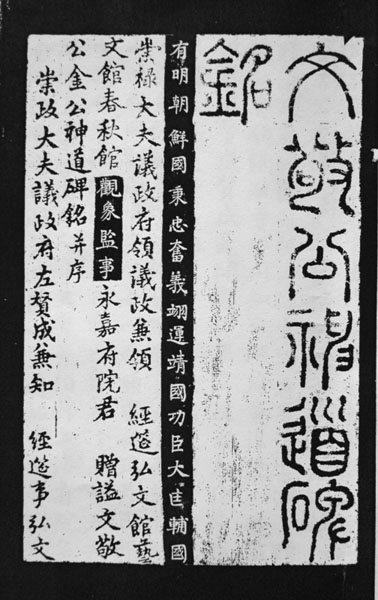 文敬公神道碑
銘
有明朝鮮國秉忠奮義翊運靖國功臣大匡輔國
崇禄大夫議政府領議政兼領 經筵弘文館藝
文館春秋館觀象監事永嘉府院君 贈謚文敬
公金公神道碑銘并序
崇政大夫議政府左賛成兼知 經筵事弘文